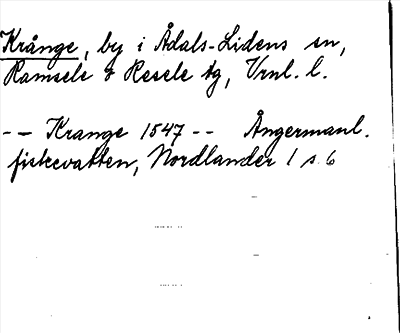 Krånge, by i Ådals-Lidens sn,
Ramsele & Resele tg, Vrnl. l.
-- Krange 1547 -- Ångermanl.
fiskevatten, Nordlander 1 s. 6